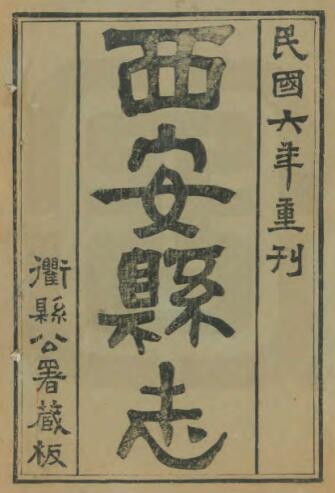 民國六年重刊
西安縣志
衢縣公署藏板